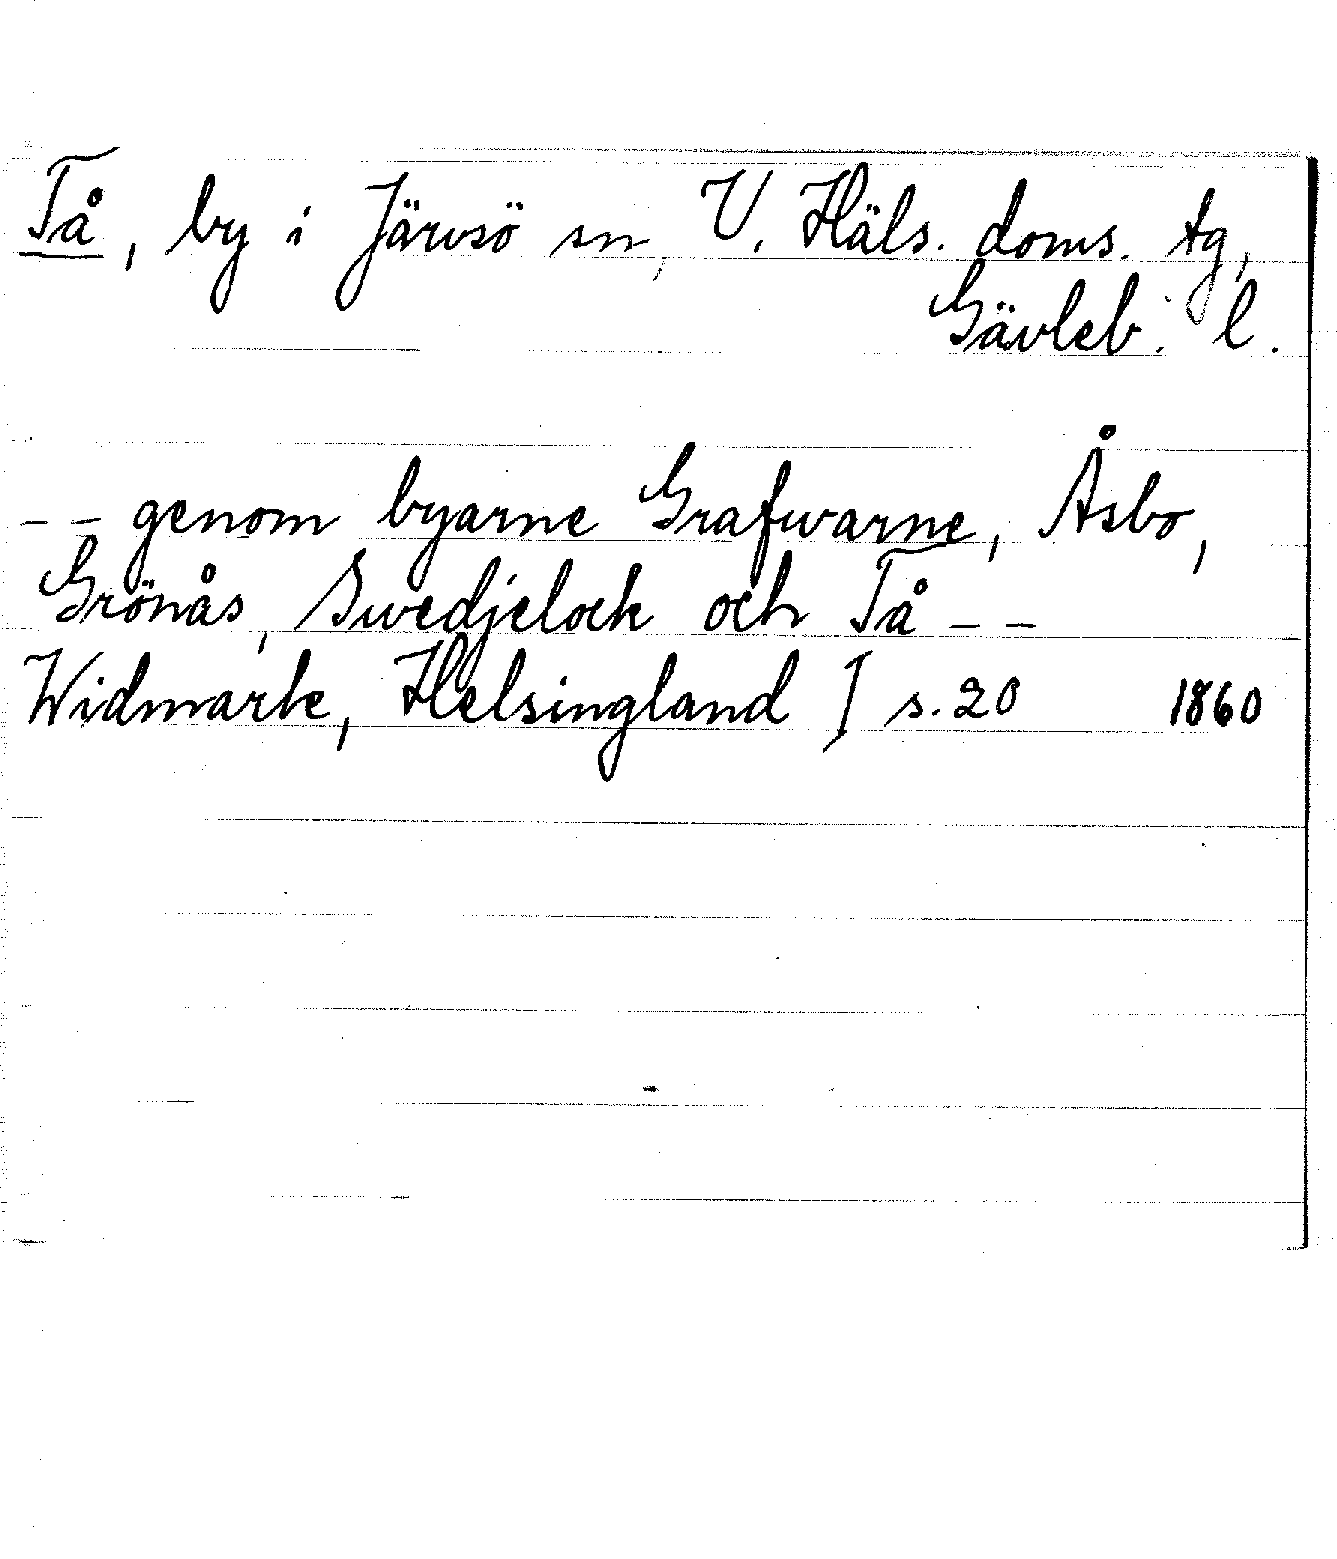 Tå, by i Järvsö sn, V. Häls. doms. tg,
Gävleb. l.
– – genom byarne Grafwarne, Åsbo,
Grönås, Swedjelock och Tå – –
Widmark, Helsingland I s. 20 1860